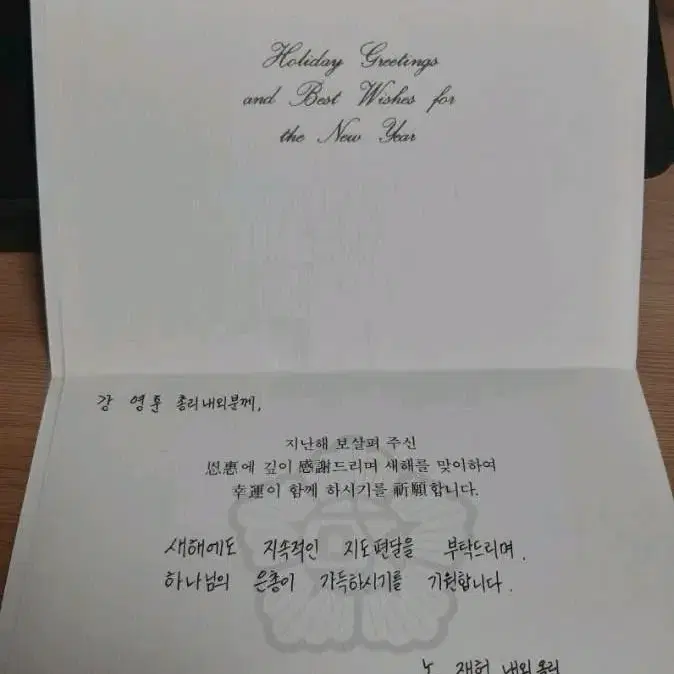 Holiday Greetings
and Best Wishes for
the New Year
강 영훈 총리내외분께,
지난해 보살펴 주신
恩惠에 깊이 感謝드리며 새해를 맞이하여
幸運이 함께 하시기를 祈願합니다.
새해에도 지속적인 지도편달을 부탁드리며,
하나님의 은총이 가득하시기를 기원합니다.
노 재헌 내외올림